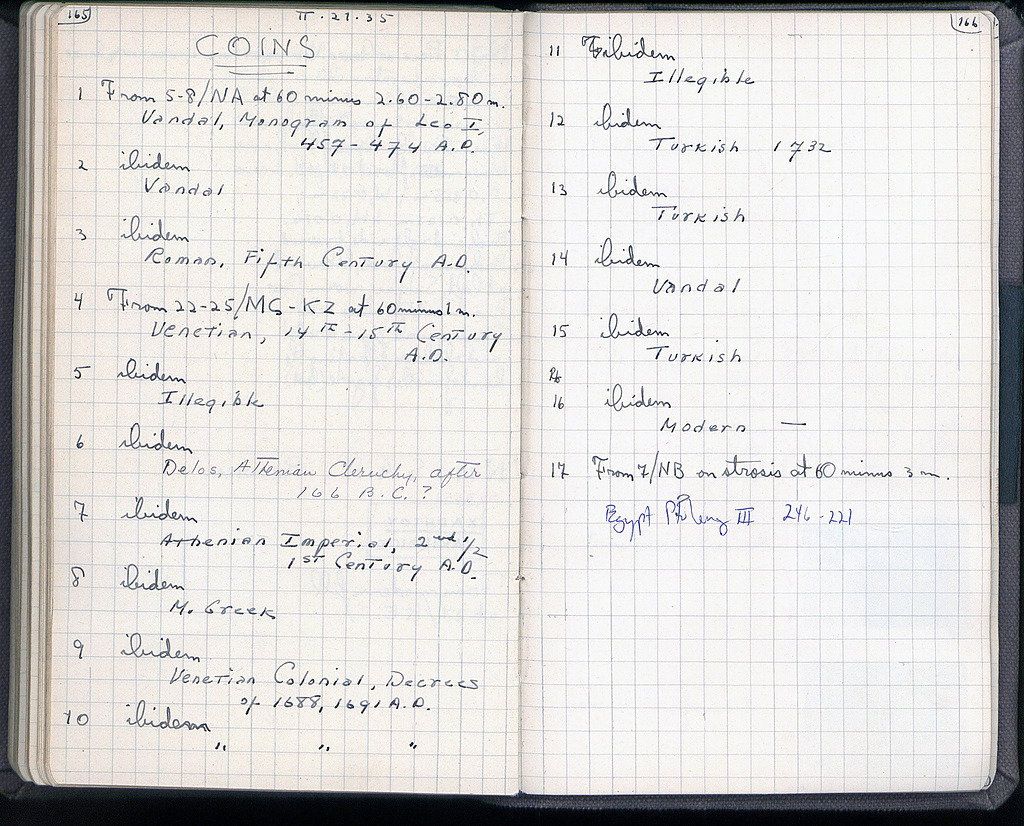 165
II.21.35
COINS
1 From 5-8/NA at 60 minus 2.60-2.80 m.
Vandal, Monogram of Leo I,
457-474 A.D.
2 ibidem
Vandal
3 ibidem
Roman, Fifth Century A.D.
4 From 22-25/MS-KZ at 60 minus 1 m.
Venetian, 14th-15th Century
A.D.
5 ibidem
Illegible
6 ibidem
Delos, Athenian Cleruchy, after
166 B.C.?
7 ibidem
Athenian Imperial, 2nd 1/2
1st Century A.D.
8 ibidem
M. Greek
9 ibidem
Venetian Colonial, Decrees
of 1688, 1691 A.D.
10 ibidem
" " "
166
11 ibidem
Illegible
12 ibidem
Turkish 1732
13 ibidem
Turkish
14 ibidem
Vandal
15 ibidem
Turkish
16 ibidem
Modern —
17 From 7/NB on strosis at 60 minus 3 m.
Egypt Ptolemy III 246-221